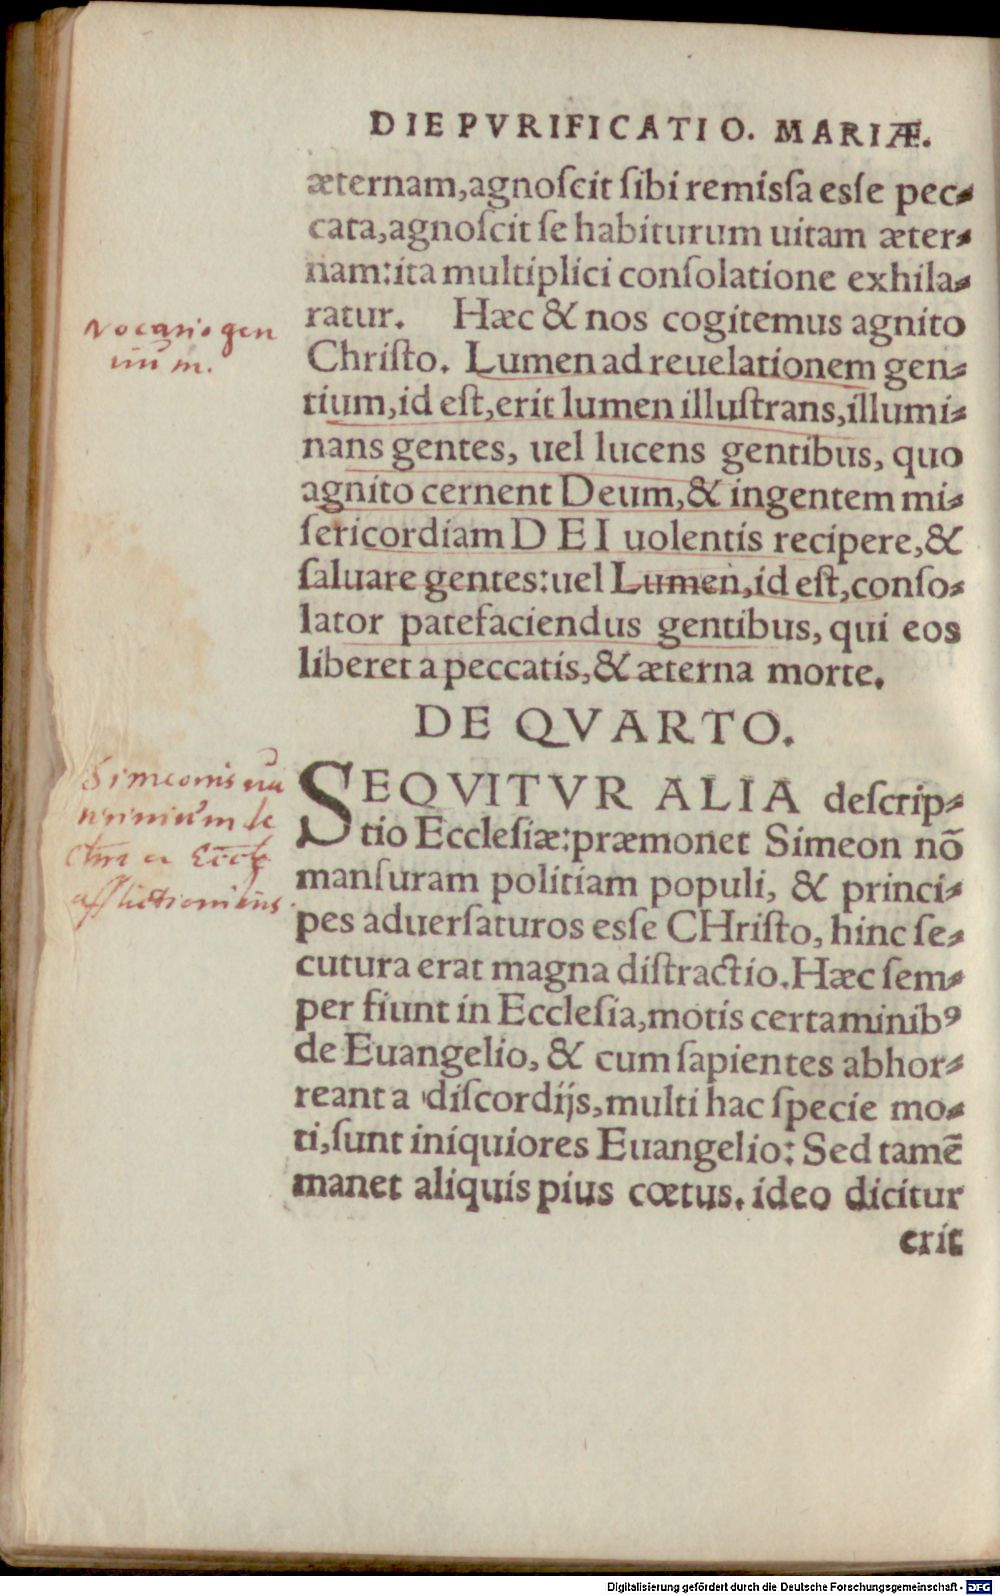 DIE PVRIFICATIO. MARIÆ.
æternam,agnoſcit ſibi remiſſa eſſe pec⸗
cata,agnoſcit ſe habiturum uitam æter⸗
nam:ita multiplici conſolatione exhila⸗
ratur. Hæc & nos cogitemus agnito
Chriſto. Lumen ad reuelationem gen⸗
tium,id eſt,erit lumen illuſtrans,illumi⸗
nans gentes, uel lucens gentibus, quo
agnito cernent Deum,& ingentem mi⸗
ſericordiam DEI uolentis recipere,&
ſaluare gentes:uel Lumen,id eſt,conſo⸗
lator patefaciendus gentibus, qui eos
liberet a peccatis,& æterna morte.
Vocatio gen
tiũm.
DE QVARTO.
SEQVITVR ALIA deſcrip⸗
tio Eccleſiæ:præmonet Simeon nõ
manſuram politiam populi, & princi⸗
pes aduerſaturos eſſe CHriſto, hinc ſe⸗
cutura erat magna diſtractio.Hæc ſem⸗
per fiunt in Eccleſia,motis certaminibꝰ
de Euangelio, & cum ſapientes abhor⸗
reant a diſcordijs,multi hac ſpecie mo⸗
ti,ſunt iniquiores Euangelio: Sed tamẽ
manet aliquis pius cœtus. ideo dicitur
erit
Simeonis ua
ticinium de
afflictionibus.
Digitalisierung gefördert durch die Deutsche Forschungsgemeinschaft - DFG